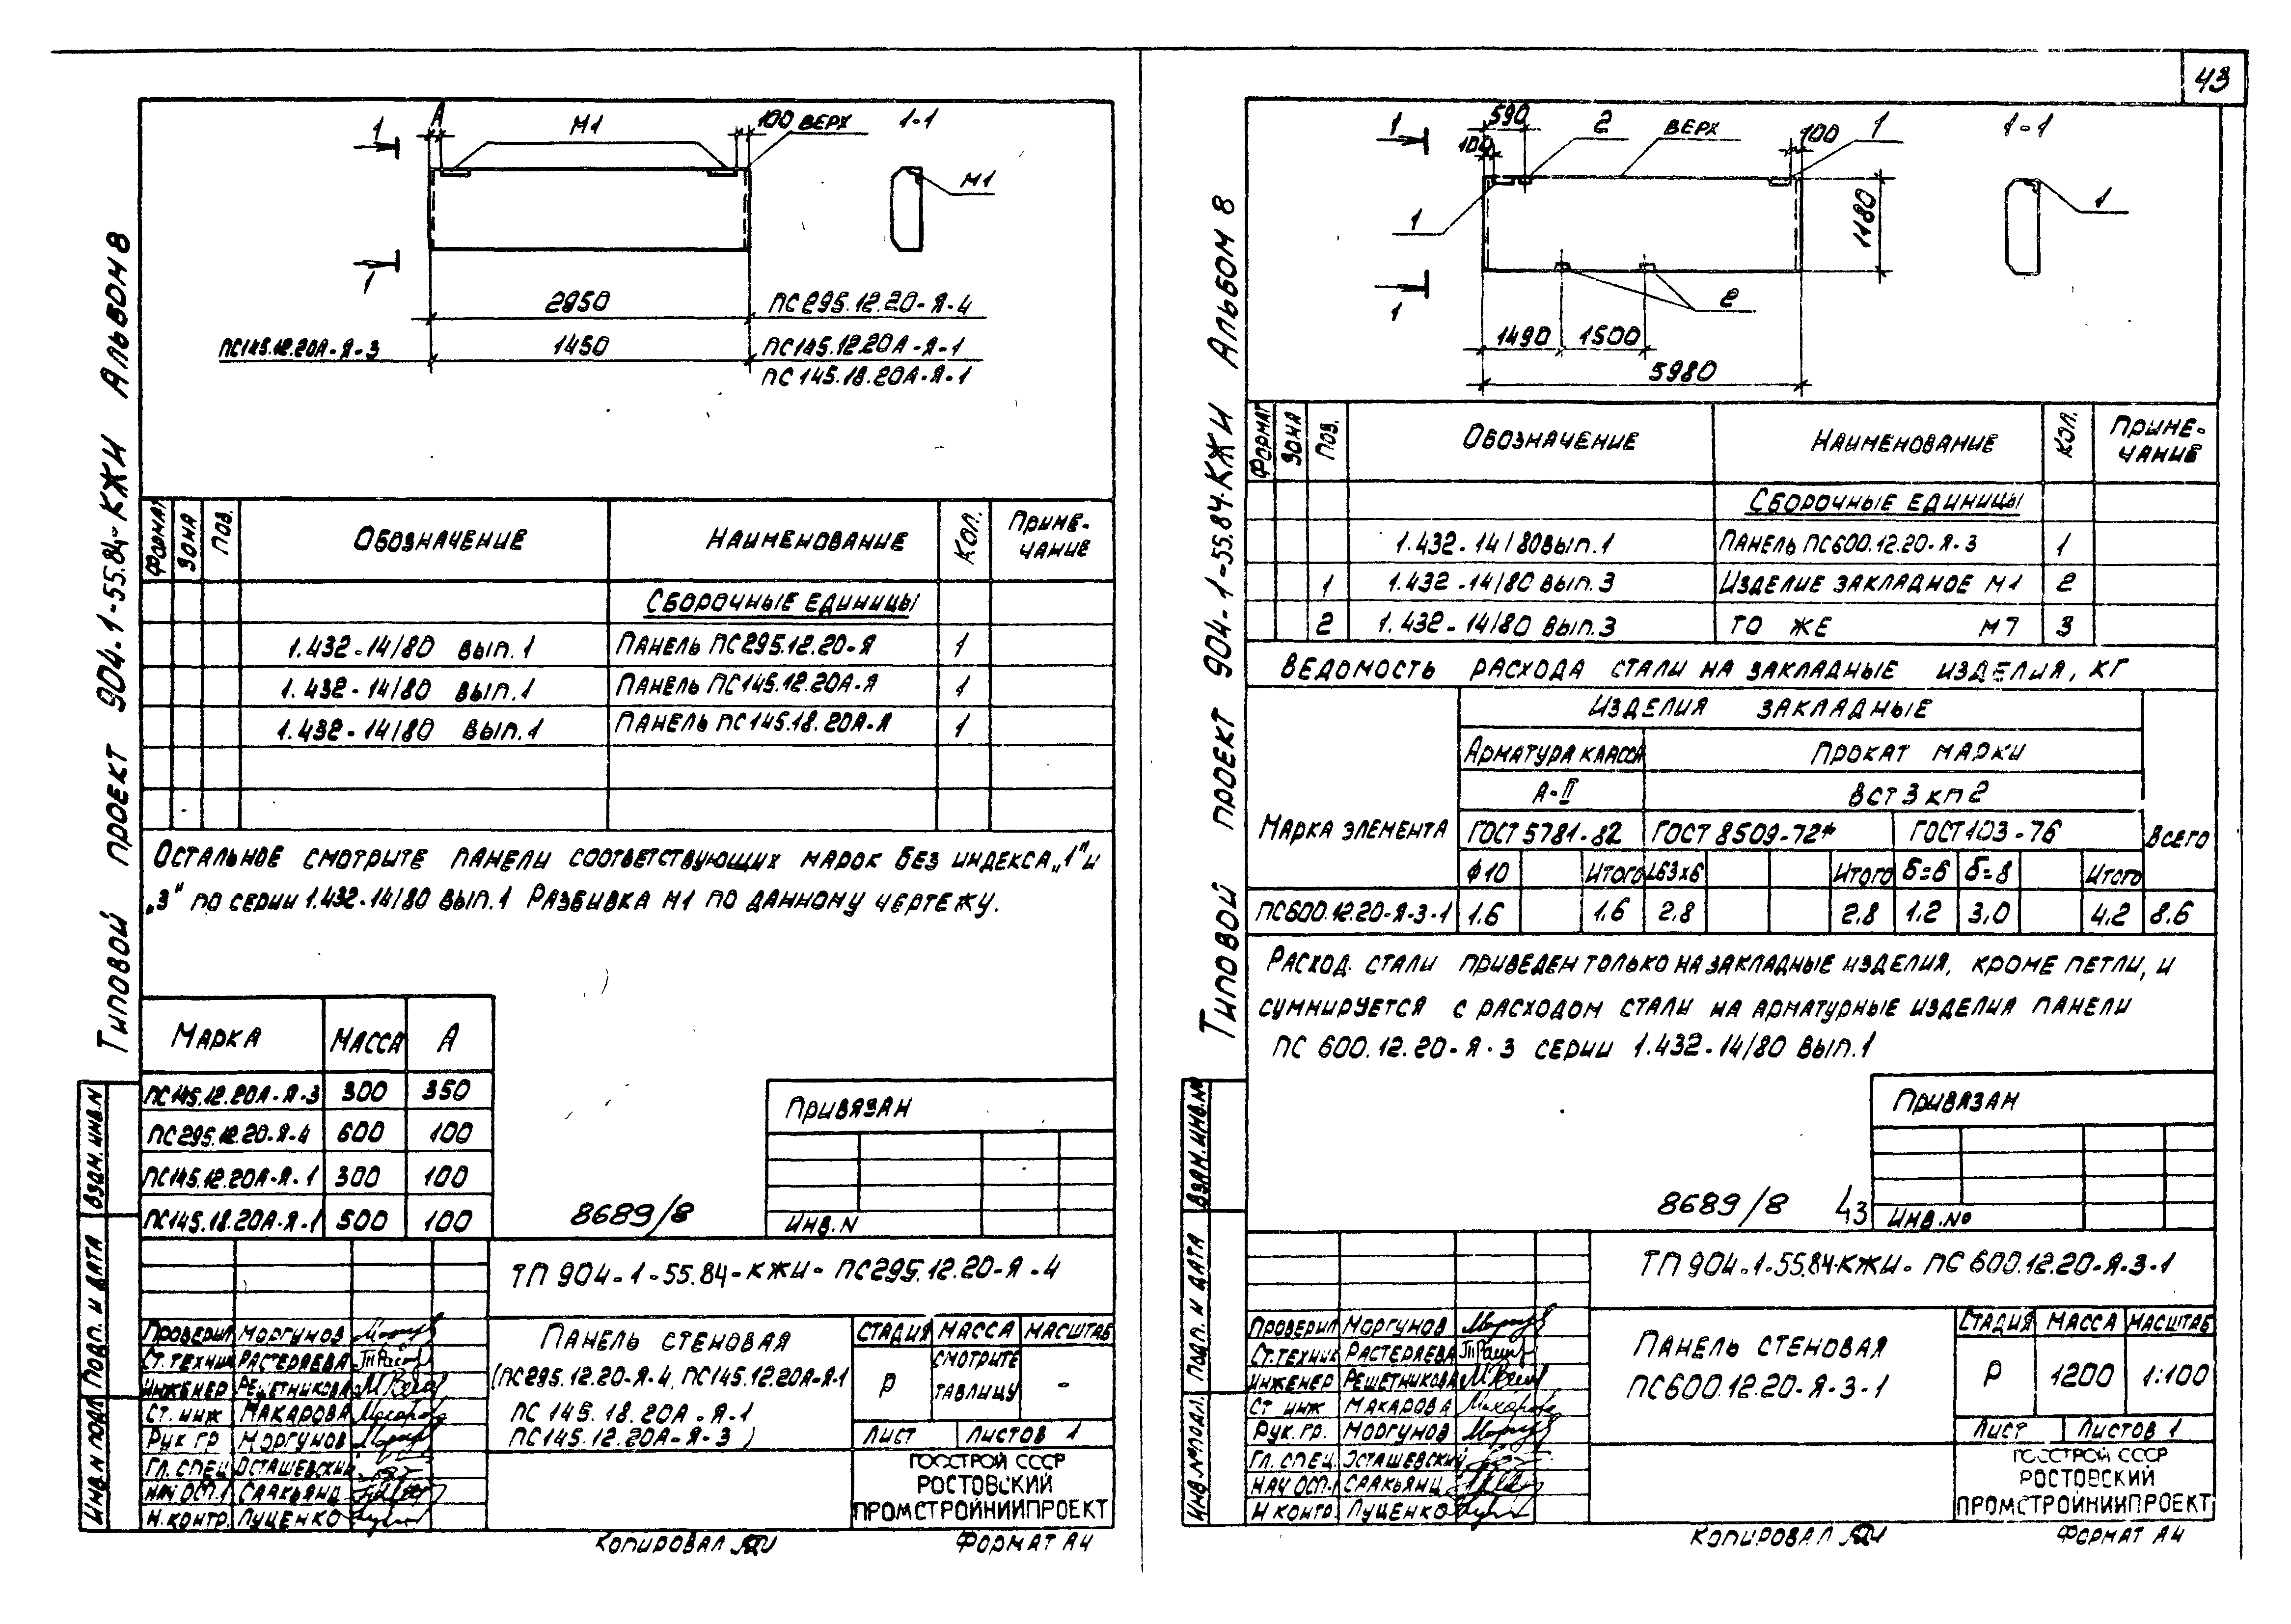 43
Типовой проект 904-1-55.84-КЖИ Альбом 8
1
А
М1
100
ВЕРХ
1-1
М1
1
2950
ПС295.12.20-Я-4
ПС145.12.20А-Я-3
1450
ПС145.12.20А-Я-1
ПС145.18.20А-Я-1
Формат
Зона
Поз.
Обозначение
Наименование
Кол.
Приме-
чание
Сборочные единицы
1.432-14/80 вып.1 Панель ПС295.12.20-Я 1
1.432-14/80 вып.1 Панель ПС145.12.20А-Я 1
1.432-14/80 вып.1 Панель ПС145.18.20А-Я 1
Остальное смотрите панели соответствующих марок без индекса „1" и
„3" по серии 1.432-14/80 вып.1 Разбивка М1 по данному чертежу.
Марка Масса А
ПС145.12.20А-Я-3 300 350
ПС295.12.20-Я-4 600 100
ПС145.12.20А-Я-1 300 100
ПС145.18.20А-Я-1 500 100
Привязан
Инв.N
8689/8
Взам.инв.N
Подп. и дата
Инв.N подл
ТП 904-1-55.84-КЖИ-ПС295.12.20-Я-4
Проверил Моргунов
Ст.техник Растеряева
Инженер Решетникова
Ст. инж Макарова
Рук гр Моргунов
Гл. спец Осташевский
Нач ОСП-1 Саакьянц
Н.контр. Луценко
Панель стеновая
(ПС295.12.20-Я-4, ПС145.12.20А-Я-1
ПС 145.18.20А-Я-1
ПС145.12.20А-Я-3)
Стадия Масса Масштаб
Р
смотрите
таблицу
-
Лист Листов 1
ГОССТРОЙ СССР
РОСТОВСКИЙ
ПРОМСТРОЙНИИПРОЕКТ
Копировал
Формат А4
Типовой проект 904-1-55.84-КЖИ Альбом 8
1
590
100
2
ВЕРХ
100
1
1-1
1
1480
1
1
2
1490
1500
5980
Формат
Зона
Поз.
Обозначение
Наименование
Кол.
Приме-
чание
Сборочные единицы
1.432-14/80 вып.1 Панель ПС600.12.20-Я-3 1
1 1.432-14/80 вып.3 Изделие закладное М1 2
2 1.432-14/80 вып.3 То же М7 3
Ведомость расхода стали на закладные изделия, кг
Марка элемента
Изделия закладные
Всего
Арматура класса
Прокат марки
А-II
ВСт3кп2
ГОСТ 5781-82 ГОСТ 8509-72* ГОСТ 103-76
Ф10 Итого L63х6 Итого δ=6 δ=8 Итого
ПС600.12.20-Я-3-1 1.6 1.6 2.8 2.8 1.2 3.0 4.2 8.6
Расход стали приведен только на закладные изделия, кроме петли, и
суммируется с расходом стали на арматурные изделия панели
ПС 600.12.20-Я-3 серии 1.432-14/80 вып.1
Привязан
Инв.№
8689/8 43
Взам.инв.№
Подп. и дата
Инв.№подл.
ТП 904-1-55.84-КЖИ-ПС600.12.20-Я-3-1
Проверил Моргунов
Ст.техник Растеряева
Инженер Решетникова
Ст инж Макарова
Рук.гр. Моргунов
Гл. спец Осташевский
Нач ОСП-1 Саакьянц
Н контр. Луценко
Панель стеновая
ПС600.12.20-Я-3-1
Стадия Масса Масштаб
Р 1200 1:100
Лист Листов 1
ГОССТРОЙ СССР
РОСТОВСКИЙ
ПРОМСТРОЙНИИПРОЕКТ
Копировал
Формат А4